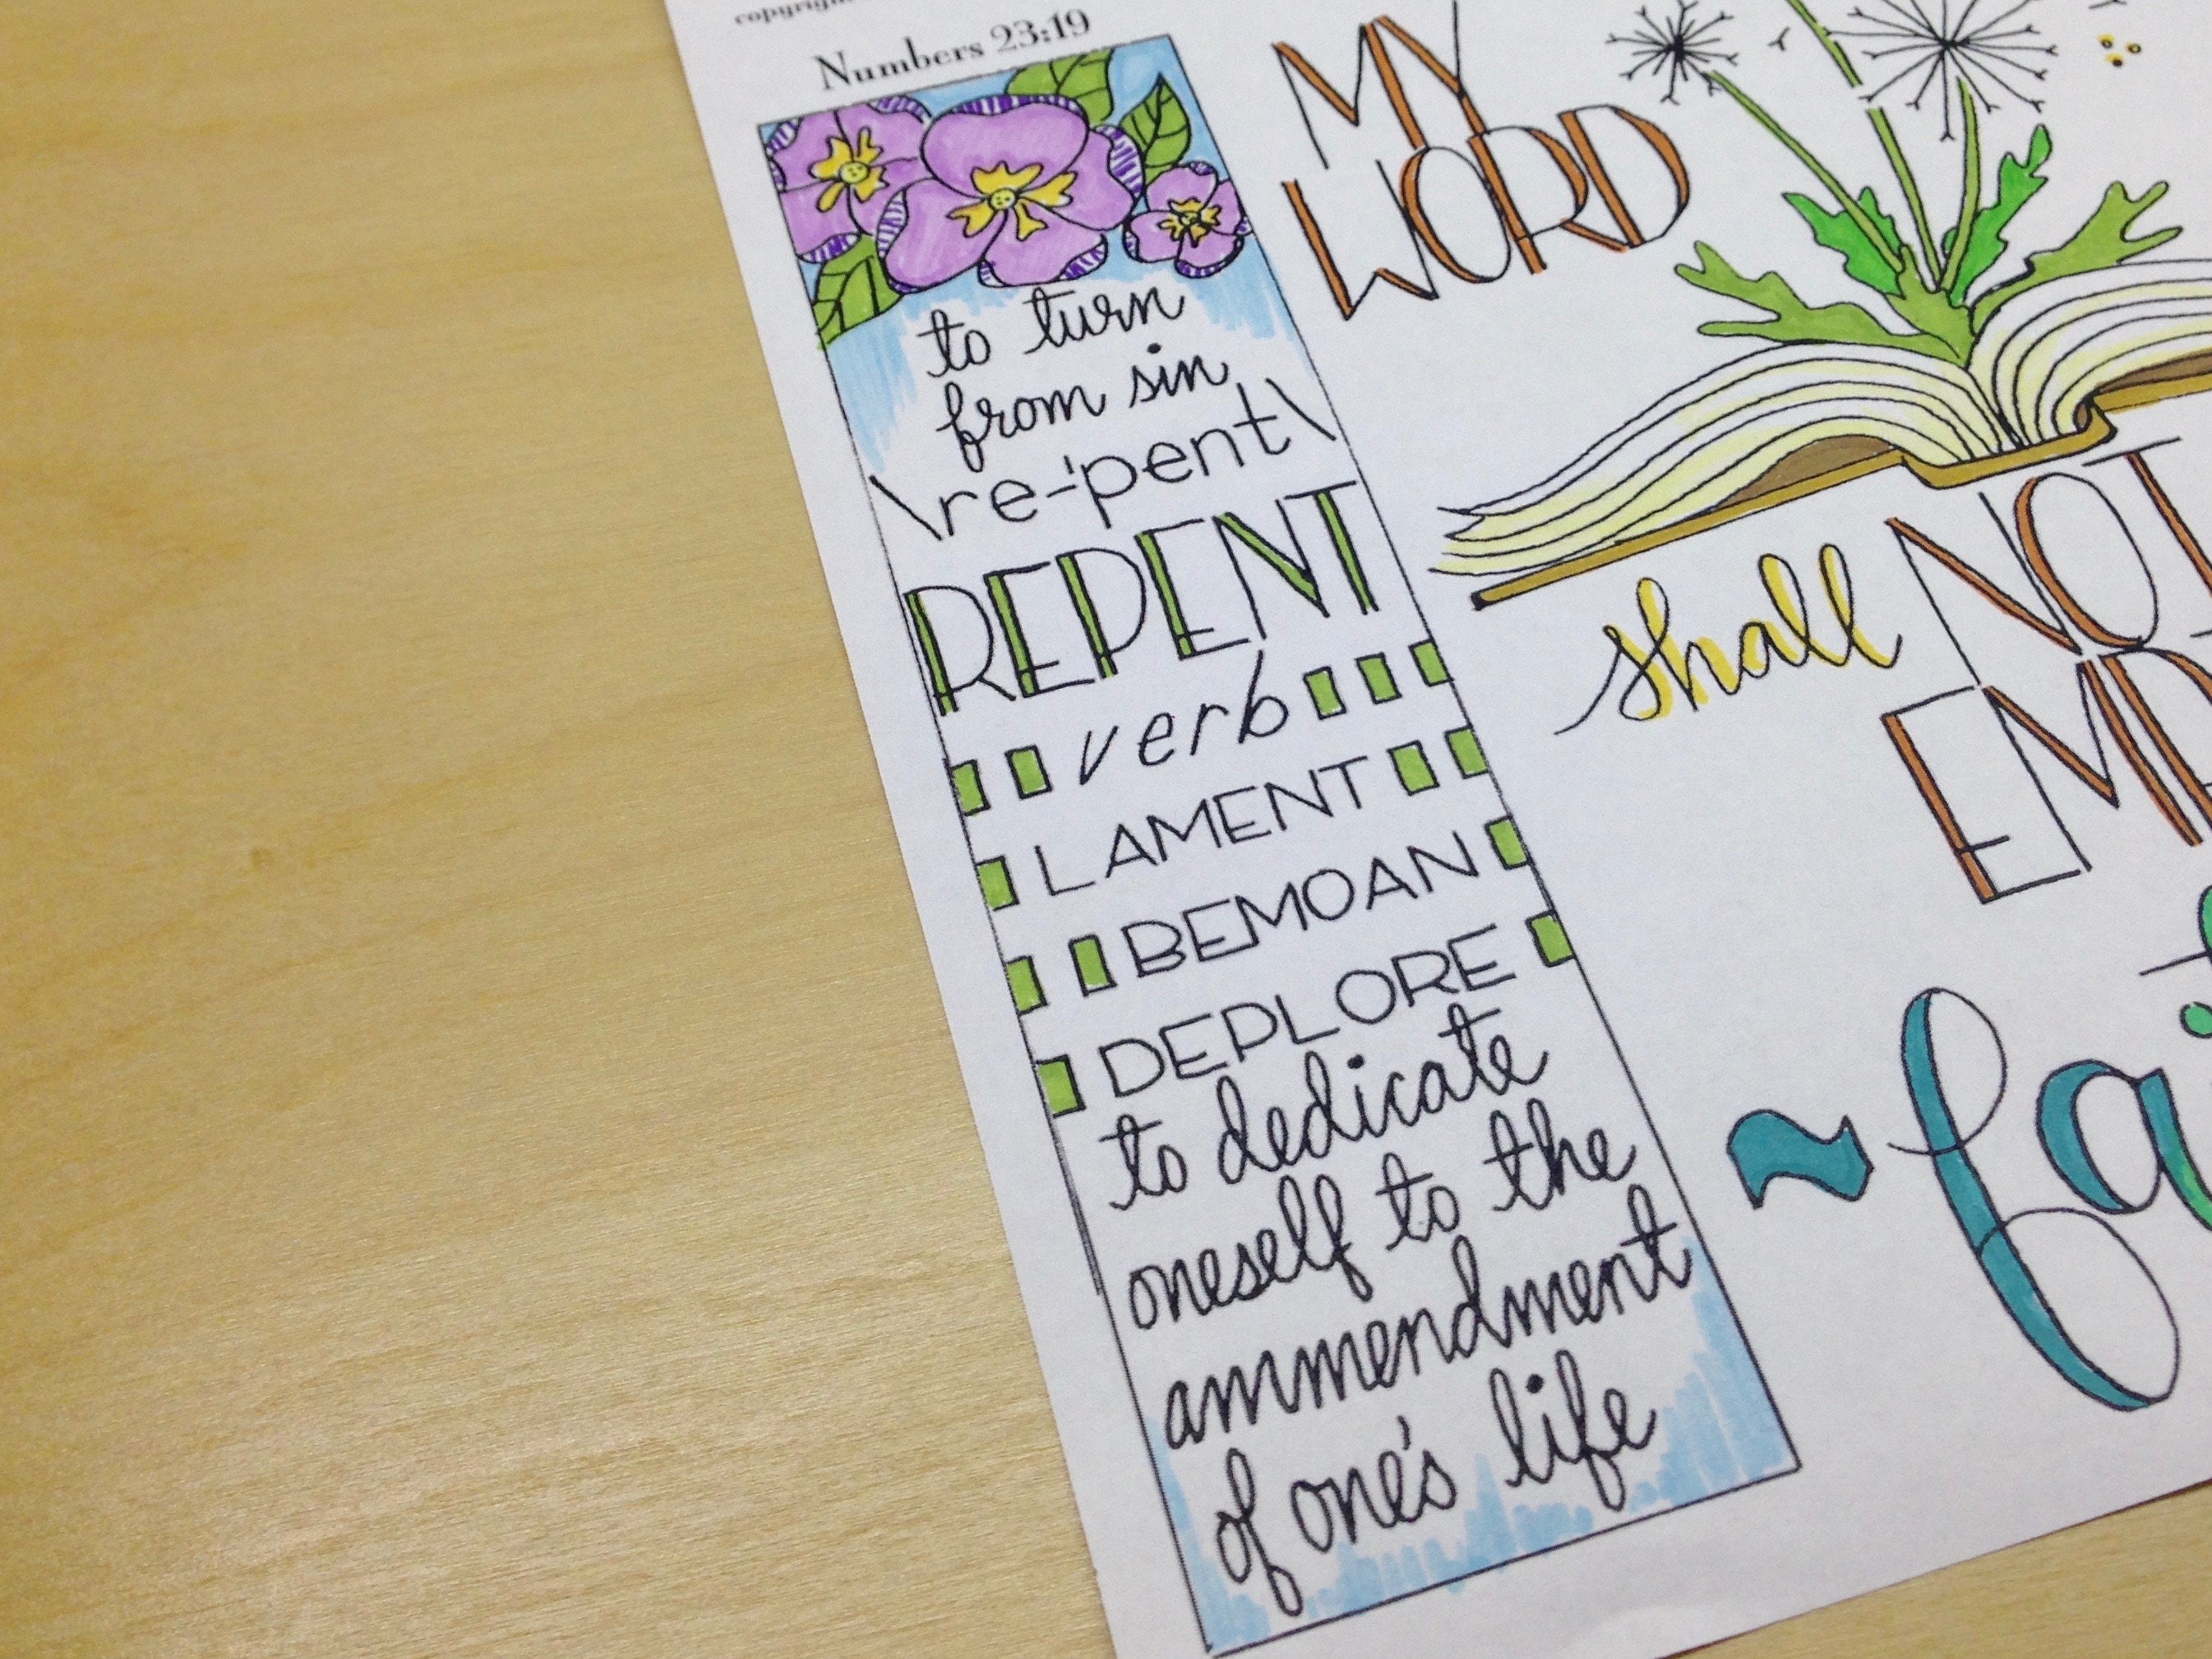 Numbers 23:19
to turn
from sin
\re-'pent\
REPENT
verb
LAMENT
BEMOAN
DEPLORE
to dedicate
oneself to the
ammendment
of one's life
MY
WORD
shall NOT